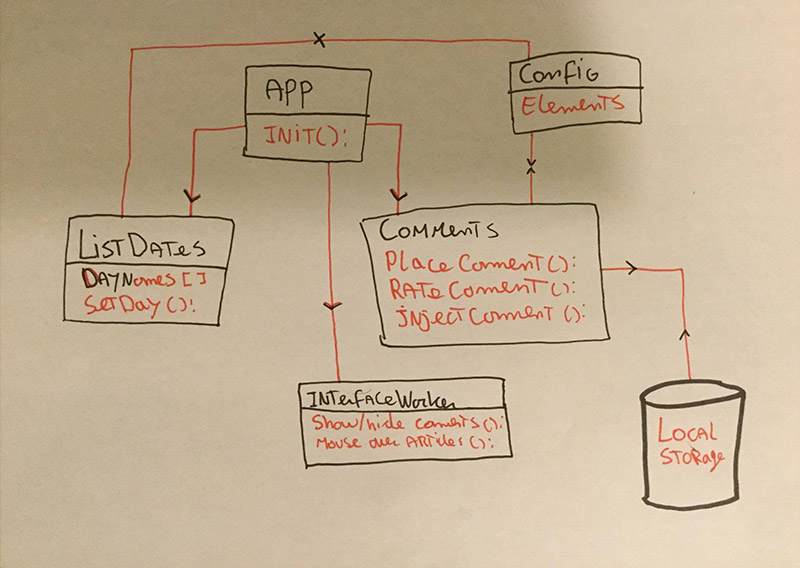 Config
Elements
APP
INIT():
ListDates
DAYNames[]
SetDay():
Comments
PlaceComment():
RateComment():
injectComment():
INTerfaceWorker
Show/hide coments():
Mouse over ARTicles():
LOCAL
STORage